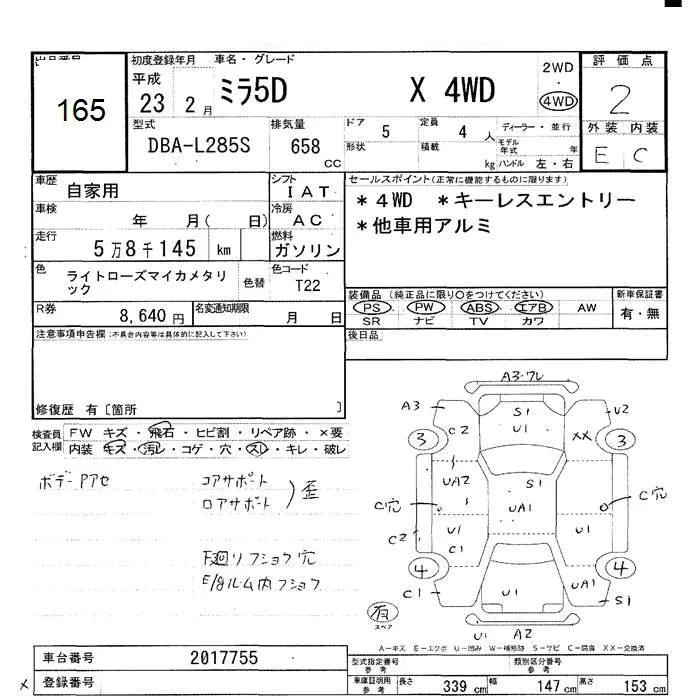 165
初度登録年月 車名・グレード 評価点
平成 23 2月 ミラ5D X 4WD 2WD 4WD 2
型式 排気量 ドア 定員 ディーラー・並行 外装 内装
DBA-L285S 658 CC 5 4 人 E C
形状 積載 kg モデル年式 年 ハンドル 左・右
車歴 自家用 シフト IAT セールスポイント(正常に機能するものに限ります)
車検 年 月( 日) 冷房 AC *4WD *キーレスエントリー
走行 5万8千145 km 燃料 ガソリン *他車用アルミ
色 ライトローズマイカメタリック 色替 色コード T22
装備品(純正品に限り○をつけてください) 新車保証書
PS PW ABS エアB AW 有・無
SR ナビ TV カワ
R券 8,640円 名変通知期限 月 日
後日品
注意事項申告欄(不具合内容等は具体的に記入して下さい)
修復歴 有〔箇所 〕
検査員記入欄 FW キズ・飛石・ヒビ割・リペア跡・×要
内装 キズ・汚レ・コゲ・穴・スレ・キレ・破レ
ボデーPアセ コアサポート
ロアサポート 歪
E/gルーム内フショク
A3
A3
S1
U1
U2
C2
XX
3
3
UA2
S1
C穴
UA1
C穴
U1
C1
U1
C2
4
4
C1
U1
UA1
S1
有
スペア
U1 A2
A-キズ E-エクボ U-凹み W-補修跡 S-サビ C-腐食 XX-交換済
車台番号 2017755
型式指定番号 参考 類別区分番号 参考
× 登録番号
車庫証明用 参考 長さ 339 cm 幅 147 cm 高さ 153 cm